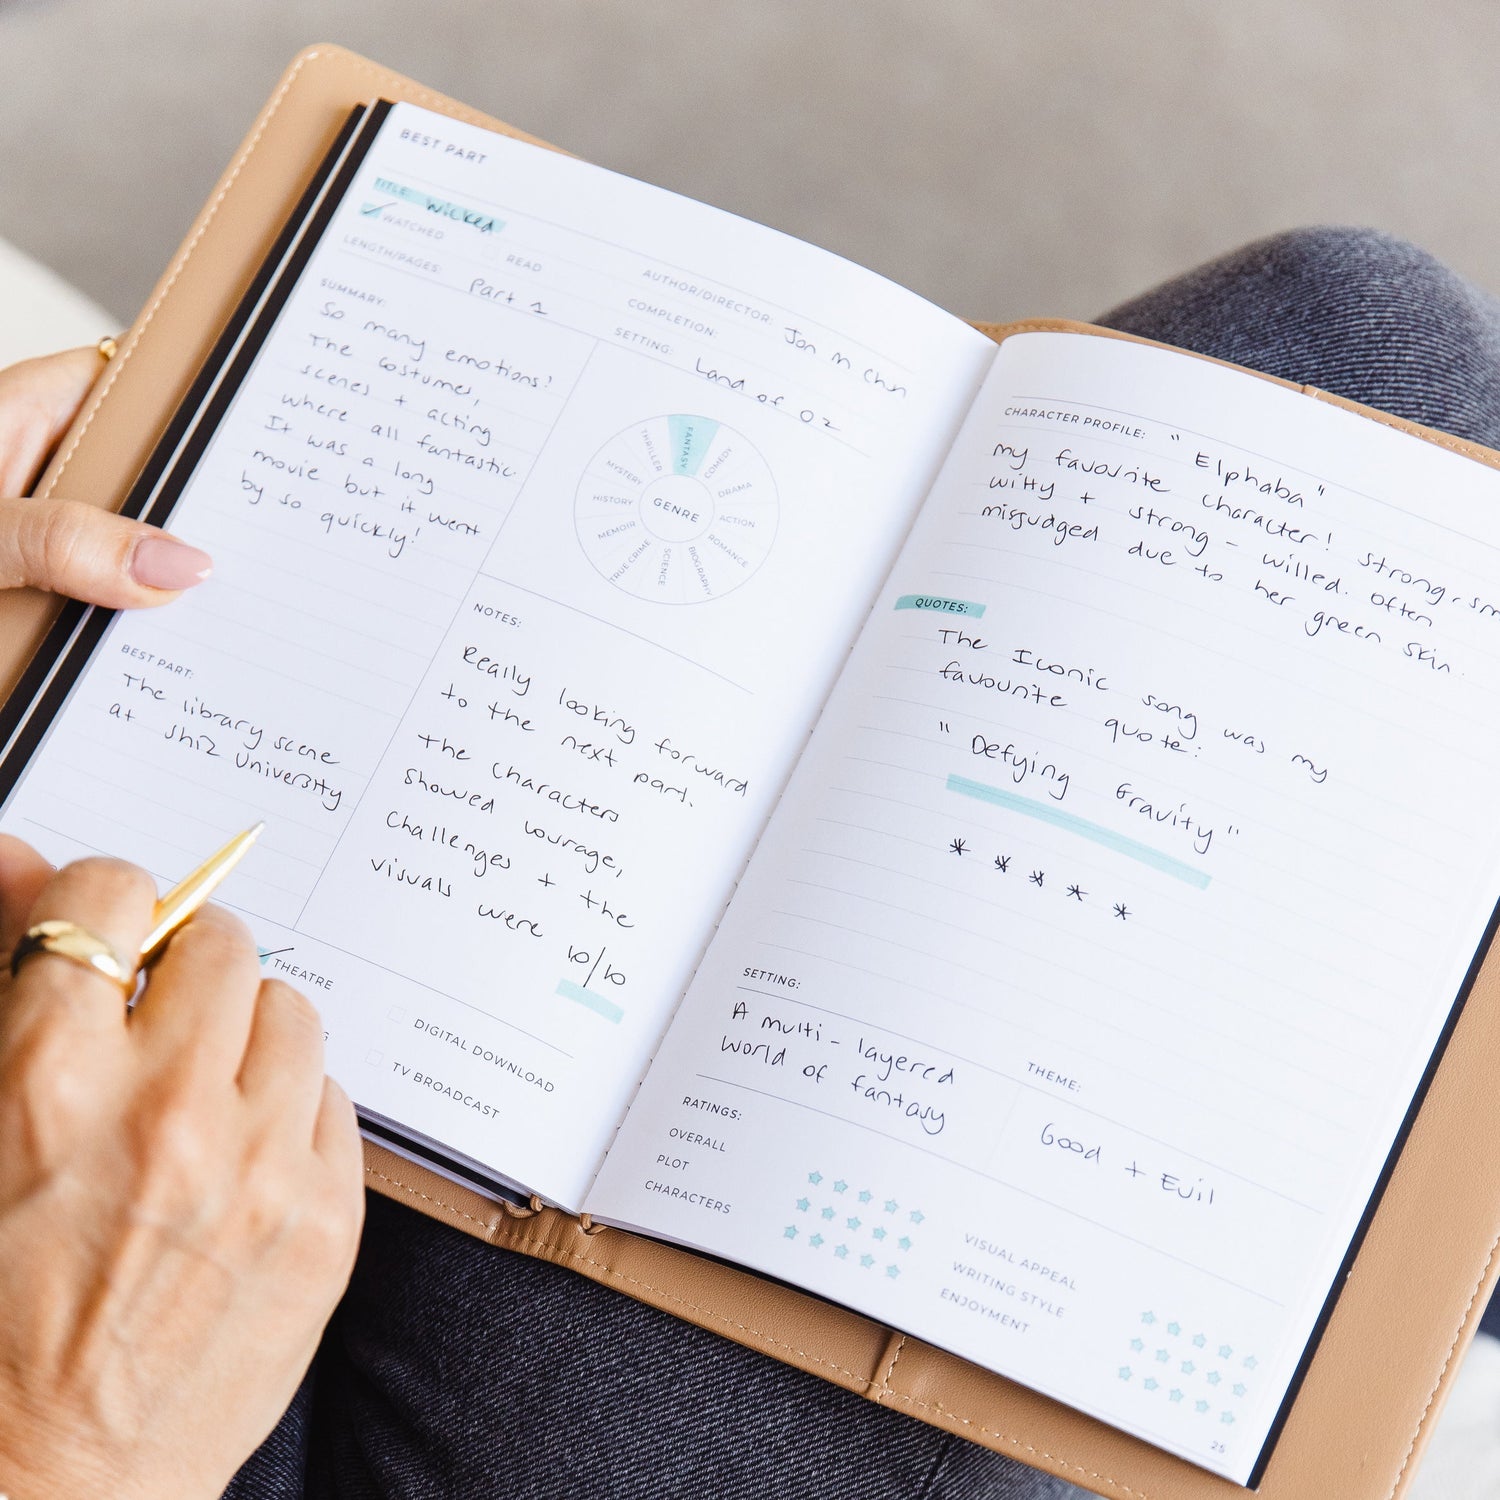 BEST PART
TITLE: Wicked
WATCHED
READ
LENGTH/PAGES: Part 1
AUTHOR/DIRECTOR: Jon M Chu
COMPLETION:
SETTING: Land of Oz
SUMMARY:
So many emotions!
The costumes,
scenes + acting
where all fantastic.
It was a long
movie but it went
by so quickly!
GENRE
FANTASY
COMEDY
DRAMA
ACTION
ROMANCE
BIOGRAPHY
SCIENCE
TRUE CRIME
MEMOIR
HISTORY
MYSTERY
THRILLER
BEST PART:
The library scene
at Shiz University
NOTES:
Really looking forward
to the next part.
The characters
showed courage,
challenges + the
visuals were 10/10
THEATRE
DIGITAL DOWNLOAD
TV BROADCAST
CHARACTER PROFILE: "Elphaba"
my favourite character! Strong, sm
witty + strong-willed. Often
misjudged due to her green skin.
QUOTES:
The Iconic song was my
favourite quote:
"Defying Gravity"
* * * * *
SETTING:
A multi-layered
world of fantasy
THEME:
Good + Evil
RATINGS:
OVERALL
PLOT
CHARACTERS
VISUAL APPEAL
WRITING STYLE
ENJOYMENT